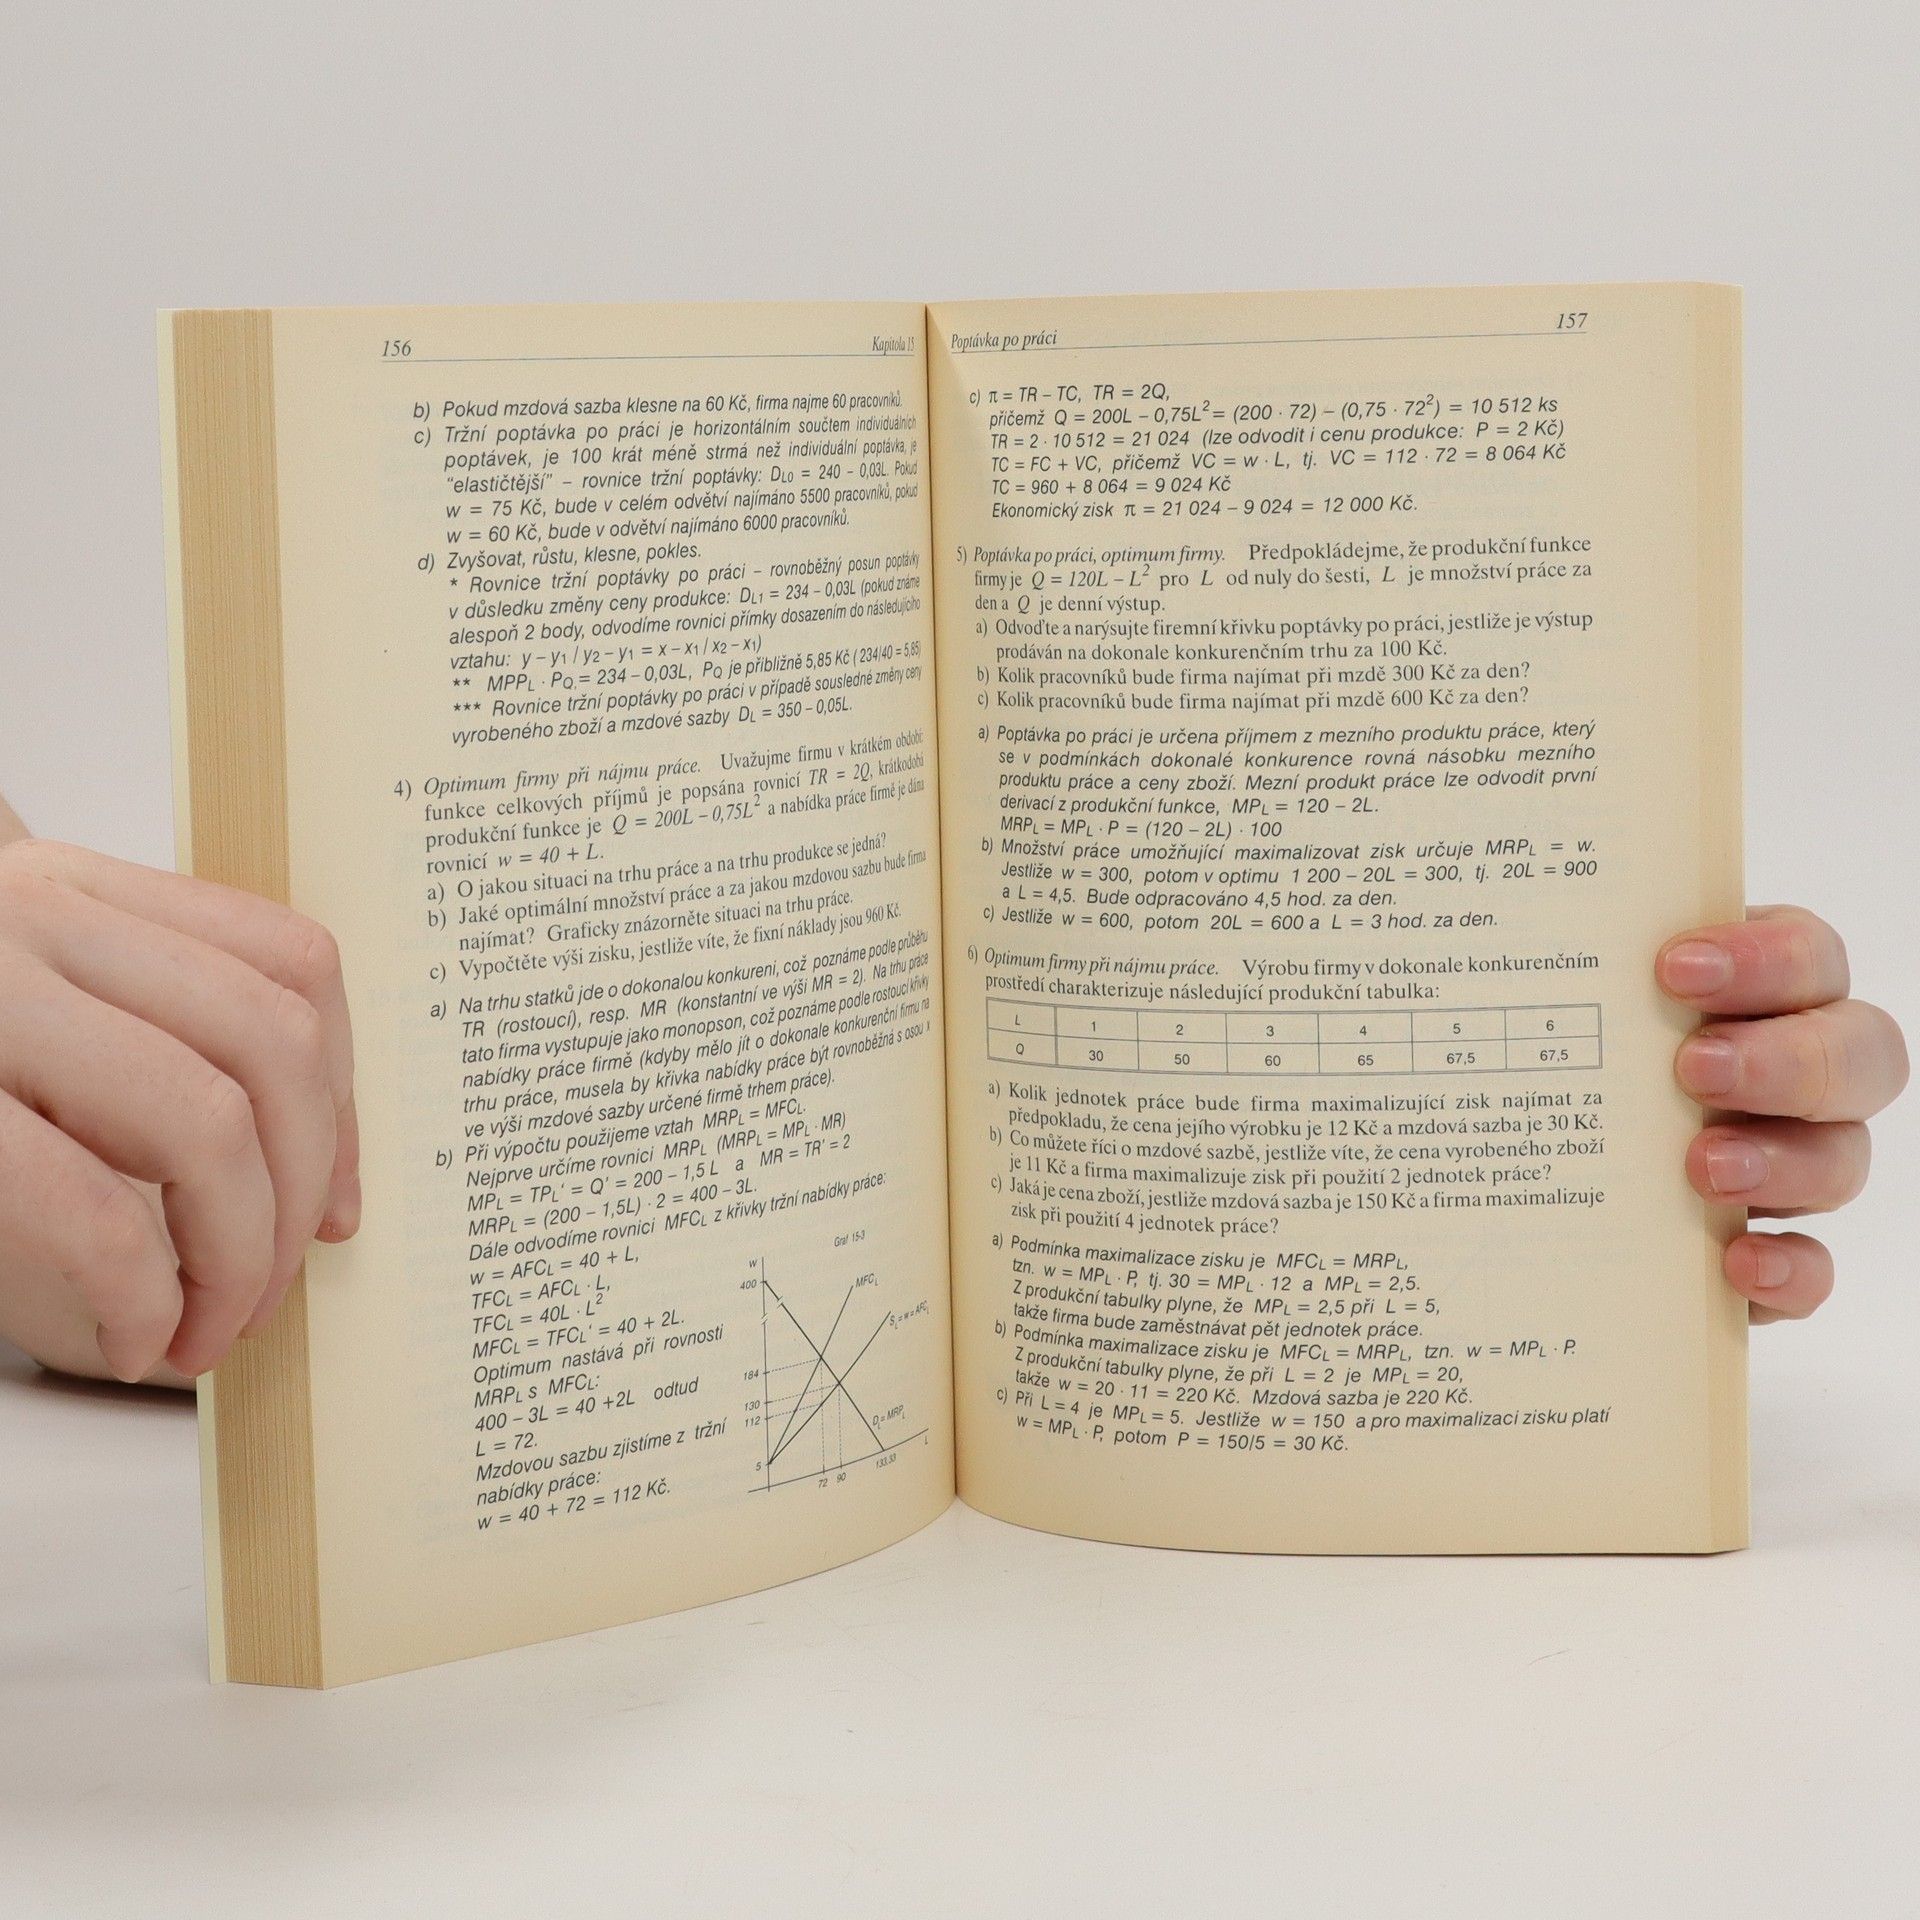 156
Kapitola 15
b) Pokud mzdová sazba klesne na 60 Kč, firma najme 60 pracovníků.
c) Tržní poptávka po práci je horizontálním součtem individuálních
poptávek, je 100 krát méně strmá než individuální poptávka, je
“elastičtější” – rovnice tržní poptávky: DL0 = 240 – 0,03L. Pokud
w = 75 Kč, bude v celém odvětví najímáno 5500 pracovníků, pokud
w = 60 Kč, bude v odvětví najímáno 6000 pracovníků.
d) Zvyšovat, růstu, klesne, pokles.
* Rovnice tržní poptávky po práci – rovnoběžný posun poptávky
v důsledku změny ceny produkce: DL1 = 234 – 0,03L (pokud známe
alespoň 2 body, odvodíme rovnici přímky dosazením do následujícího
vztahu: y – y1 / y2 – y1 = x – x1 / x2 – x1)
** MPPL · PQ, = 234 – 0,03L, PQ je přibližně 5,85 Kč ( 234/40 = 5,85)
*** Rovnice tržní poptávky po práci v případě sousledné změny ceny
vyrobeného zboží a mzdové sazby DL = 350 – 0,05L.
4) Optimum firmy při nájmu práce. Uvažujme firmu v krátkém období:
funkce celkových příjmů je popsána rovnicí TR = 2Q, krátkodobá
produkční funkce je Q = 200L – 0,75L² a nabídka práce firmě je dána
rovnicí w = 40 + L.
a) O jakou situaci na trhu práce a na trhu produkce se jedná?
b) Jaké optimální množství práce a za jakou mzdovou sazbu bude firma
najímat? Graficky znázorněte situaci na trhu práce.
c) Vypočtěte výši zisku, jestliže víte, že fixní náklady jsou 960 Kč.
a) Na trhu statků jde o dokonalou konkureni, což poznáme podle průběhu
TR (rostoucí), resp. MR (konstantní ve výši MR = 2). Na trhu práce
tato firma vystupuje jako monopson, což poznáme podle rostoucí křivky
nabídky práce firmě (kdyby mělo jít o dokonale konkurenční firmu na
trhu práce, musela by křivka nabídky práce být rovnoběžná s osou x
ve výši mzdové sazby určené firmě trhem práce).
b) Při výpočtu použijeme vztah MRPL = MFCL.
Nejprve určíme rovnici MRPL (MRPL = MPL · MR)
MPL = TPL' = Q' = 200 – 1,5 L a MR = TR' = 2
MRPL = (200 – 1,5L) · 2 = 400 – 3L.
Dále odvodíme rovnici MFCL z křivky tržní nabídky práce:
w = AFCL = 40 + L,
TFCL = AFCL · L,
TFCL = 40L · L²
MFCL = TFCL' = 40 + 2L.
Optimum nastává při rovnosti
MRPL s MFCL:
400 – 3L = 40 +2L odtud
L = 72.
Mzdovou sazbu zjistíme z tržní
nabídky práce:
w = 40 + 72 = 112 Kč.
Graf 15-3
w
400
MFCL
SL = w = AFCL
184
130
112
DL = MRPL
5
72 90 133,33
L
Poptávka po práci
157
c) π = TR – TC, TR = 2Q,
přičemž Q = 200L – 0,75L² = (200 · 72) – (0,75 · 72²) = 10 512 ks
TR = 2 · 10 512 = 21 024 (lze odvodit i cenu produkce: P = 2 Kč)
TC = FC + VC, přičemž VC = w · L, tj. VC = 112 · 72 = 8 064 Kč
TC = 960 + 8 064 = 9 024 Kč
Ekonomický zisk π = 21 024 – 9 024 = 12 000 Kč.
5) Poptávka po práci, optimum firmy. Předpokládejme, že produkční funkce
firmy je Q = 120L – L² pro L od nuly do šesti, L je množství práce za
den a Q je denní výstup.
a) Odvoďte a narýsujte firemní křivku poptávky po práci, jestliže je výstup
prodáván na dokonale konkurenčním trhu za 100 Kč.
b) Kolik pracovníků bude firma najímat při mzdě 300 Kč za den?
c) Kolik pracovníků bude firma najímat při mzdě 600 Kč za den?
a) Poptávka po práci je určena příjmem z mezního produktu práce, který
se v podmínkách dokonalé konkurence rovná násobku mezního
produktu práce a ceny zboží. Mezní produkt práce lze odvodit první
derivací z produkční funkce, MPL = 120 – 2L.
MRPL = MPL · P = (120 – 2L) · 100
b) Množství práce umožňující maximalizovat zisk určuje MRPL = w.
Jestliže w = 300, potom v optimu 1 200 – 20L = 300, tj. 20L = 900
a L = 4,5. Bude odpracováno 4,5 hod. za den.
c) Jestliže w = 600, potom 20L = 600 a L = 3 hod. za den.
6) Optimum firmy při nájmu práce. Výrobu firmy v dokonale konkurenčním
prostředí charakterizuje následující produkční tabulka:
L 1 2 3 4 5 6
Q 30 50 60 65 67,5 67,5
a) Kolik jednotek práce bude firma maximalizující zisk najímat za
předpokladu, že cena jejího výrobku je 12 Kč a mzdová sazba je 30 Kč.
b) Co můžete říci o mzdové sazbě, jestliže víte, že cena vyrobeného zboží
je 11 Kč a firma maximalizuje zisk při použití 2 jednotek práce?
c) Jaká je cena zboží, jestliže mzdová sazba je 150 Kč a firma maximalizuje
zisk při použití 4 jednotek práce?
a) Podmínka maximalizace zisku je MFCL = MRPL,
tzn. w = MPL · P, tj. 30 = MPL · 12 a MPL = 2,5.
Z produkční tabulky plyne, že MPL = 2,5 při L = 5,
takže firma bude zaměstnávat pět jednotek práce.
b) Podmínka maximalizace zisku je MFCL = MRPL, tzn. w = MPL · P.
Z produkční tabulky plyne, že při L = 2 je MPL = 20,
takže w = 20 · 11 = 220 Kč. Mzdová sazba je 220 Kč.
c) Při L = 4 je MPL = 5. Jestliže w = 150 a pro maximalizaci zisku platí
w = MPL · P, potom P = 150/5 = 30 Kč.